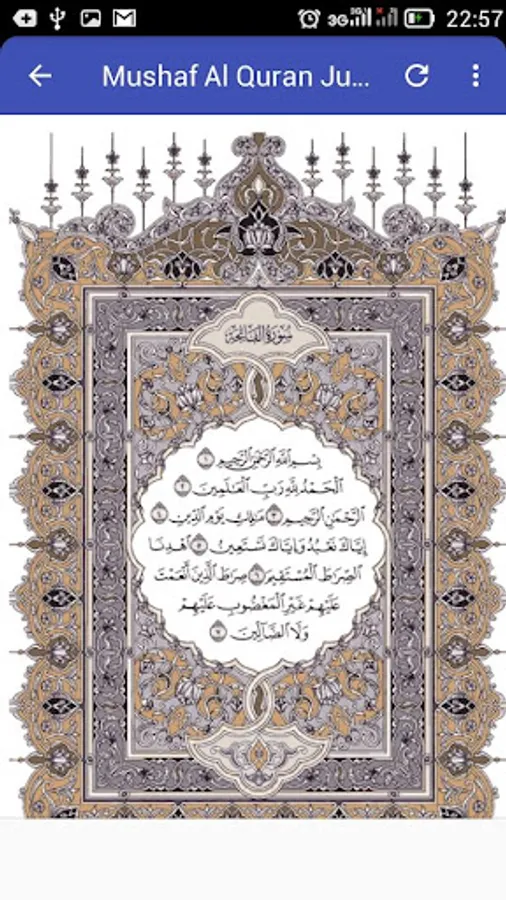 3G
22:57
Mushaf Al Quran Ju...
سُورَةُ الفَاتِحَةِ
بِسْمِ ٱللَّهِ ٱلرَّحْمَٰنِ ٱلرَّحِيمِ ١
ٱلْحَمْدُ لِلَّهِ رَبِّ ٱلْعَٰلَمِينَ ٢
ٱلرَّحْمَٰنِ ٱلرَّحِيمِ ٣ مَٰلِكِ يَوْمِ ٱلدِّينِ ٤
إِيَّاكَ نَعْبُدُ وَإِيَّاكَ نَسْتَعِينُ ٥ ٱهْدِنَا
ٱلصِّرَٰطَ ٱلْمُسْتَقِيمَ ٦ صِرَٰطَ ٱلَّذِينَ أَنْعَمْتَ
عَلَيْهِمْ غَيْرِ ٱلْمَغْضُوبِ عَلَيْهِمْ
وَلَا ٱلضَّآلِّينَ ٧